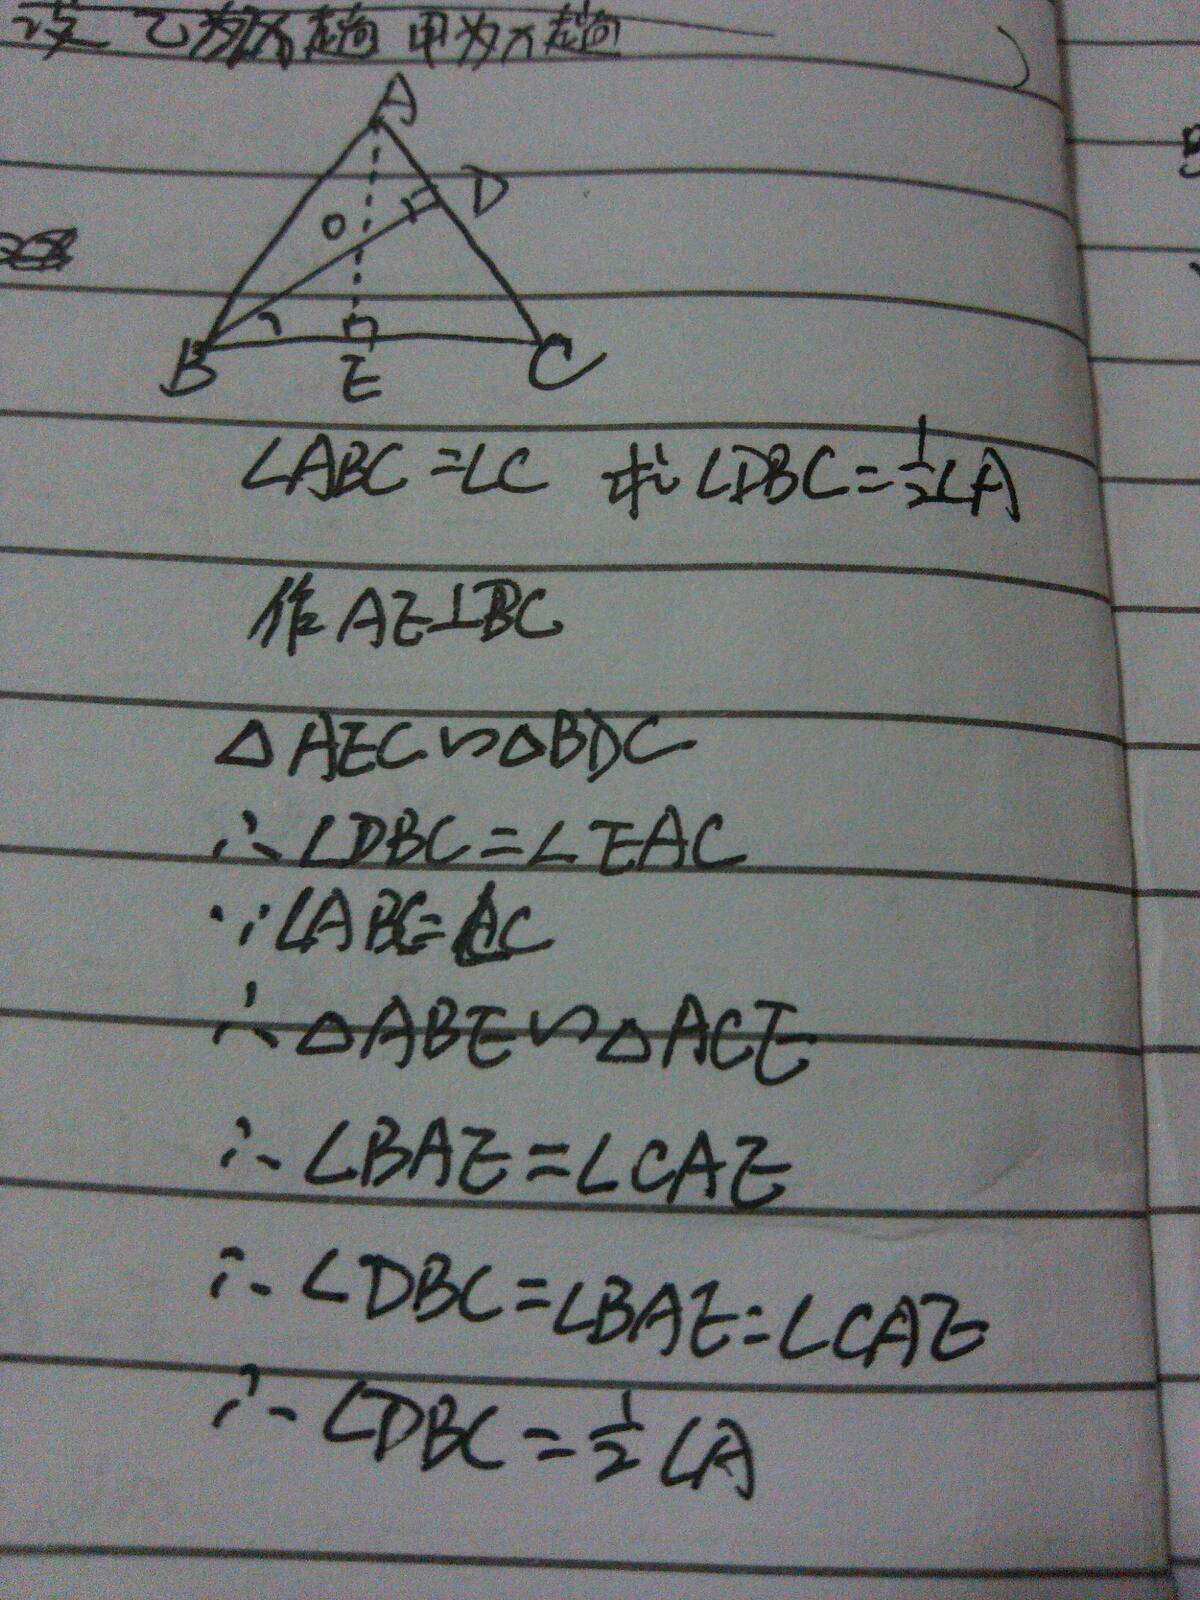 设 乙为 趟 甲为x趟
A
D
O
B
E
C
∠ABC=∠C 求∠DBC=1/2∠A
作AE⊥BC
△AEC∽△BDC
∴∠DBC=∠EAC
∵∠ABC=∠C
∴△ABE∽△ACE
∴∠BAE=∠CAE
∴∠DBC=∠BAE=∠CAE
∴∠DBC=1/2∠A